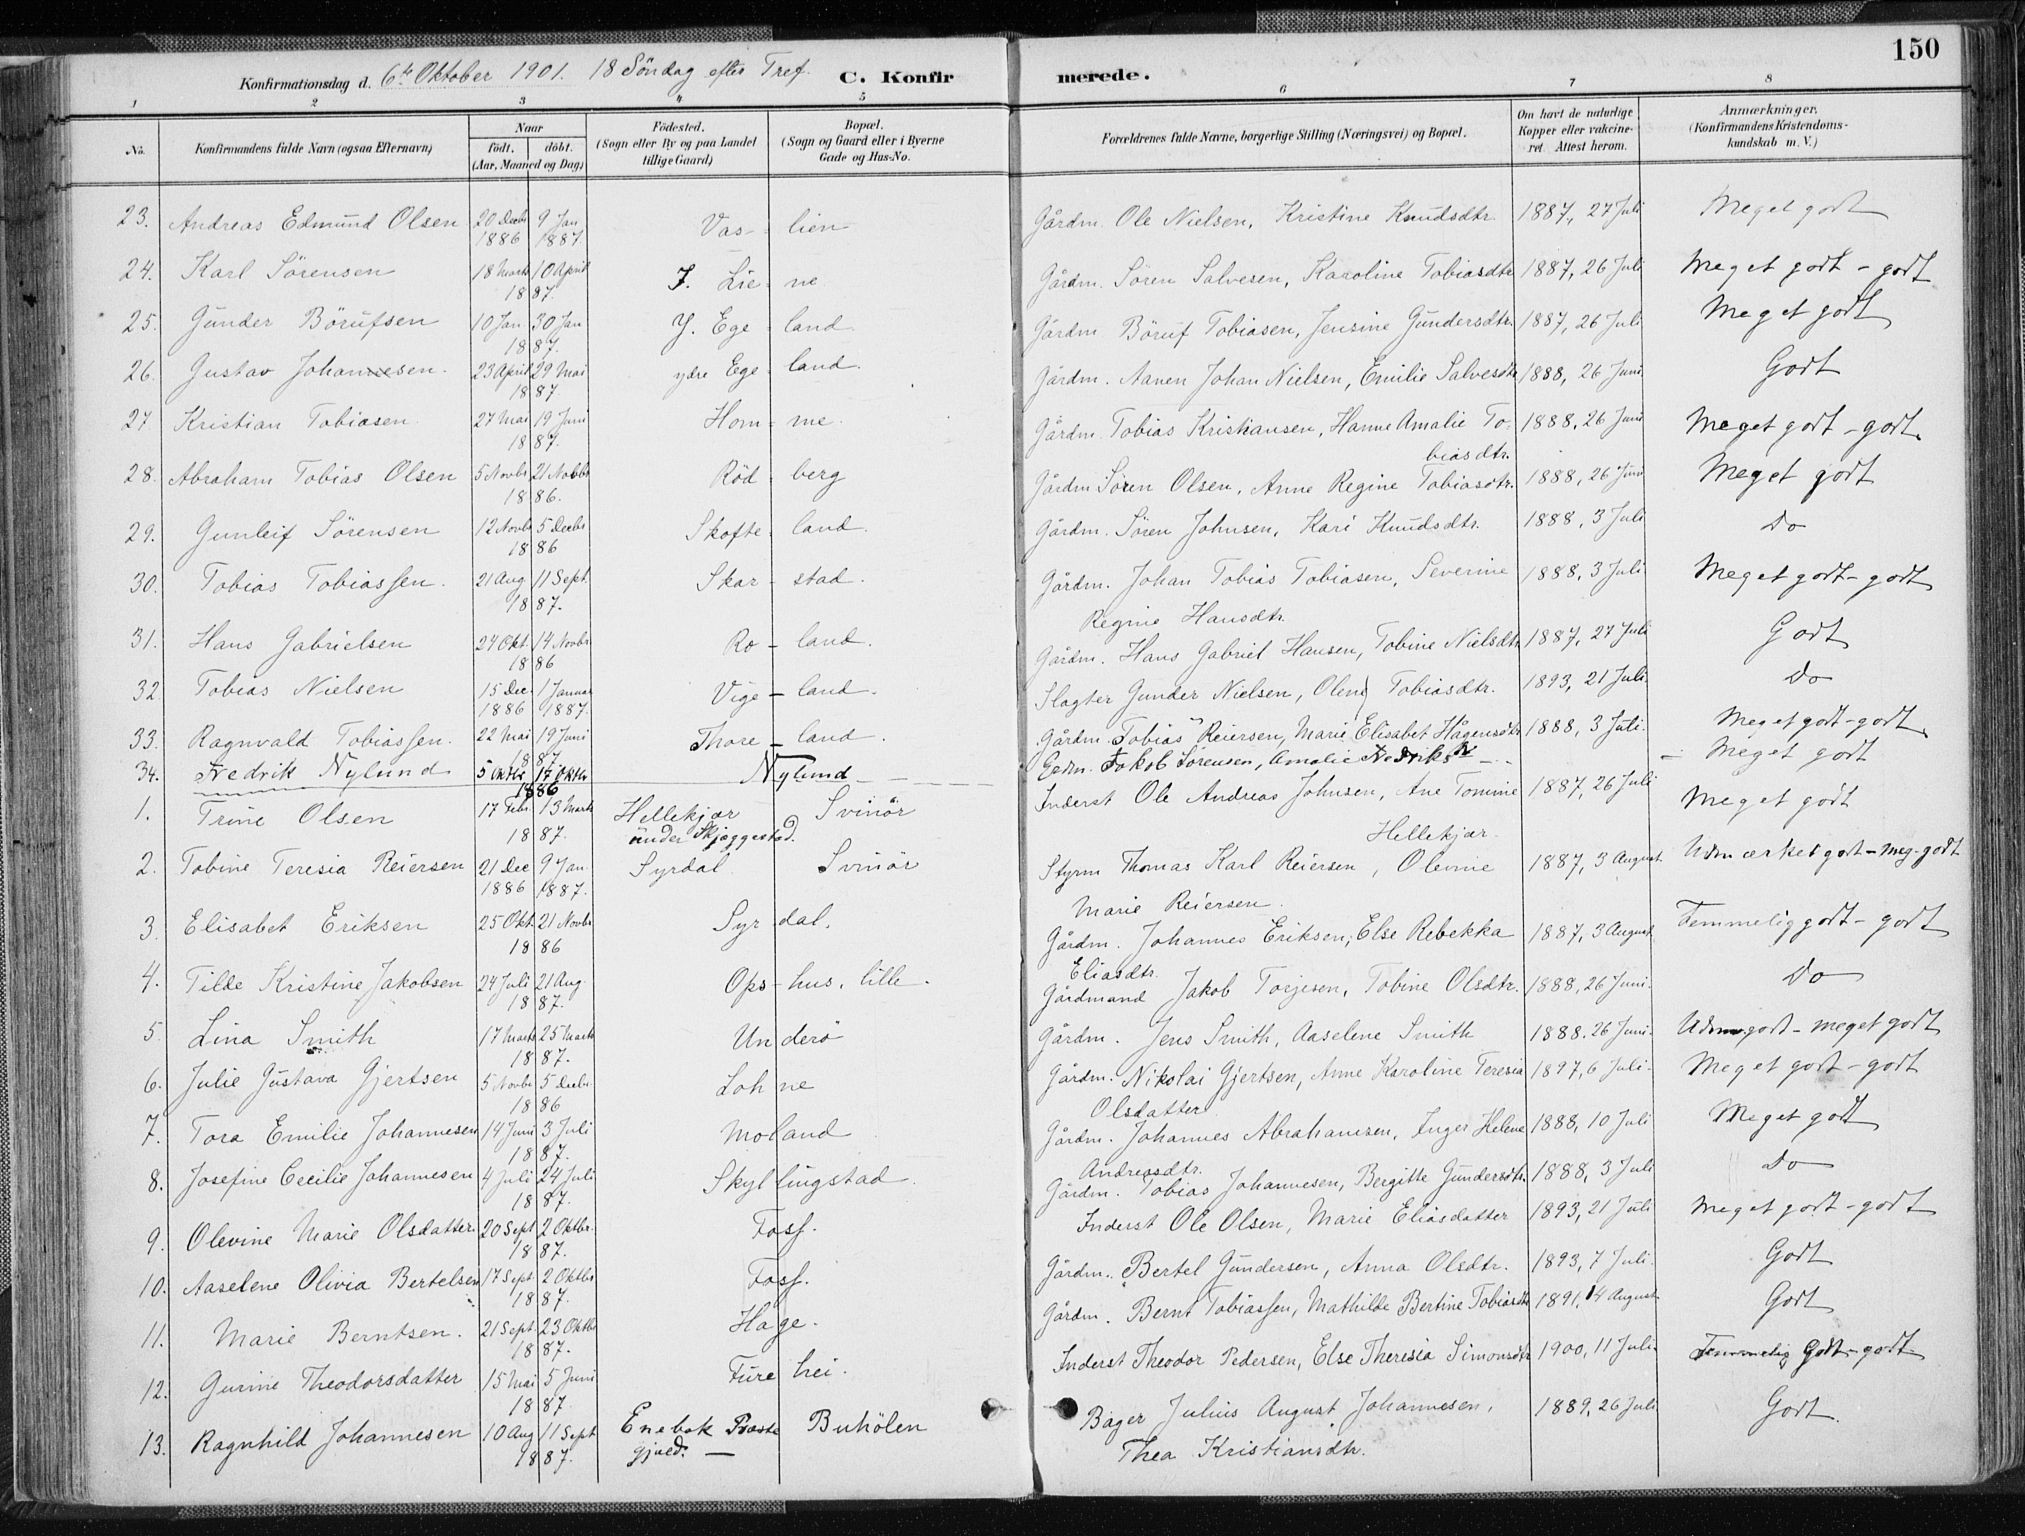 150
Konfirmationsdag d. 6te Oktober 1901. 18 Söndag efter Tref. C. Konfirmerede.
1 2 3 4 5 6 7 8
No. Konfirmandens fulde Navn (ogsaa Efternavn) Naar födt. döbt. (Aar, Maaned og Dag) Födested. (Sogn eller By og paa Landet tillige Gaard) Bopæl. (Sogn og Gaard eller i Byerne Gade og Hus-No. Forældrenes fulde Navne, borgerlige Stilling (Næringsvei) og Bopæl. Om havt de naturlige Kopper eller vakcineret. Attest herom. Anmærkninger. (Konfirmandens Kristendomskundskab m. V.)
23. Andreas Edmund Olsen 20 Decbr 1886 9 Jan 1887 Vas-lien Gårdm. Ole Nielsen, Kristine Knudsdtr. 1887, 27 Juli Meget godt
24. Karl Sörensen 18 Marts 10 April 1887. I. Lie-ne Gårdm. Sören Salvesen, Karoline Tobiasdtr 1887, 26 Juli Meget godt - godt
25. Gunder Börufsen 10 Jan 30 Jan 1887. Y. Ege-land Gårdm Böruf Tobiasen, Jensine Gundersdtr. 1887, 26 Juli Meget godt
26. Gustav Johannesen. 23 April 29 Mai 1887. ydre Ege-land. Gårdm. Aanen Johan Nielsen, Emilie Salvesdtr 1888, 26 Juni. Godt
27 Kristian Tobiasen 27 Mai 19 Juni 1887. Hom-me. Gårdm. Tobias Kristiansen, Hanne Amalie To-
biasdtr. 1888, 26 Juni Meget godt - godt.
28. Abraham Tobias Olsen 5 Novbr 21 Novbr 1886. Röd-berg Gårdm Sören Olsen, Anne Regine Tobiasdtr. 1888, 26 Juni Meget godt
29. Gunleif Sörensen 12 Novbr 5 Decbr 1886 Skofte-land. Gårdm. Sören Johnsen, Kari Knudsdtr. 1888, 3 Juli do
30. Tobias Tobiassen. 21 Aug 11 Sept. 1887. Skar-stad. Gårdm. Johan Tobias Tobiasen, Severine
Regine Hansdtr. 1888, 3 Juli Meget godt - godt
31. Hans Gabrielsen 24 Okt. 14 Novbr. 1886 Ro-land. Gårdm. Hans Gabriel Hansen, Tobine Nielsdtr 1887, 27 Juli Godt
32 Tobias Nielsen 15 Dec. 1886 1 Januar 1887. Vige-land. Slagter Gunder Nielsen, Olene Tobiasdtr. 1893, 21 Juli. do
33. Ragnvald Tobiassen. 22 Mai 19 Juni 1887 Thore-land. Gårdm. Tobias Reiersen, Marie Elisabet Hågensdtr 1888, 3 Juli. Meget godt - godt
34. Fredrik Nylund 5 Oktbr 17 Oktbr 1886 Nylund Jakob Sörensen, Amalie - Meget godt
1. Trine Olsen 17 Febr. 13 Marts 1887. Hellekjær under Skjæggestad. Svinör Inderst Ole Andreas Johnsen, Ane Tomine
Hellekjær. 1887, 26 Juli Meget godt
2. Tobine Teresia Reiersen 21 Dec 1886 9 Jan. 1887. Syrdal Svinör Styrm Thomas Karl Reiersen, Olevine
Marie Reiersen. 1887, 3 August Udmærket godt - meg. godt
3. Elisabet Eriksen 25 Okt. 21 Novbr 1886 Syrdal. Gårdm. Johannes Eriksen, Else Rebekka
Eliasdtr. 1887, 3 August. Temmelig godt - godt
4. Tilde Kristine Jakobsen 24 Juli 21 Aug. 1887. Ops-hus, lille. Gårdmand Jakob Torjesen, Tobine Olsdtr. 1888, 26 Juni. do
5. Lina Smith 17 Marts 25 Marts 1887. Underö Gårdm. Jens Smith, Aaselene Smith 1888. 26 Juni. Udm. godt - meget godt
6. Julie Gustava Gjertsen 5 Novbr 5 Decbr. 1886 Lohne Gårdm. Nikolai Gjertsen, Anne Karoline Teresia
Olsdatter 1897, 6 Juli. Meget godt - godt
7. Tora Emilie Johannesen 14 Juni 3 Juli 1887. Moland Gårdm. Johannes Abrahamsen, Inger Helene
Andreasdtr. 1888, 10 Juli Meget godt
8. Josefine Cecilie Johannesen 4 Juli 24 Juli 1887. Skyllingstad. Gårdm. Tobias Johannesen, Bergitte Gundersdtr. 1888, 3 Juli do
9. Olevine Marie Olsdatter 20 Sept 2 Oktbr. 1887. Foss. Inderst Ole Olsen, Marie Eliasdatter 1893, 21 Juli Meget godt - godt
10. Aaselene Olivia Bertelsen 17 Sept 2 Oktbr 1887. Foss. Gårdm. Bertel Gundersen, Anna Olsdtr. 1893, 7 Juli. Godt
11. Marie Berntsen. 21 Sept. 23 Oktbr 1887. Hage. Gårdm. Bernt Tobiassen, Mathilde Bertine Tobiasdtr 1891, 14 August Godt
12. Gurine Theodorsdatter 15 Mai 5 Juni 1887 Furehei. Inderst Theodor Pedersen, Else Theresia Simonsdtr 1900, 11 Juli. Temmelig godt - godt.
13. Ragnhild Johannesen 10 Aug 11 Sept 1887. Enebak Præste gjæld. - Buhölen Bager Julius August Johannesen,
Thea Kristiansdtr. 1889, 26 Juli Godt.